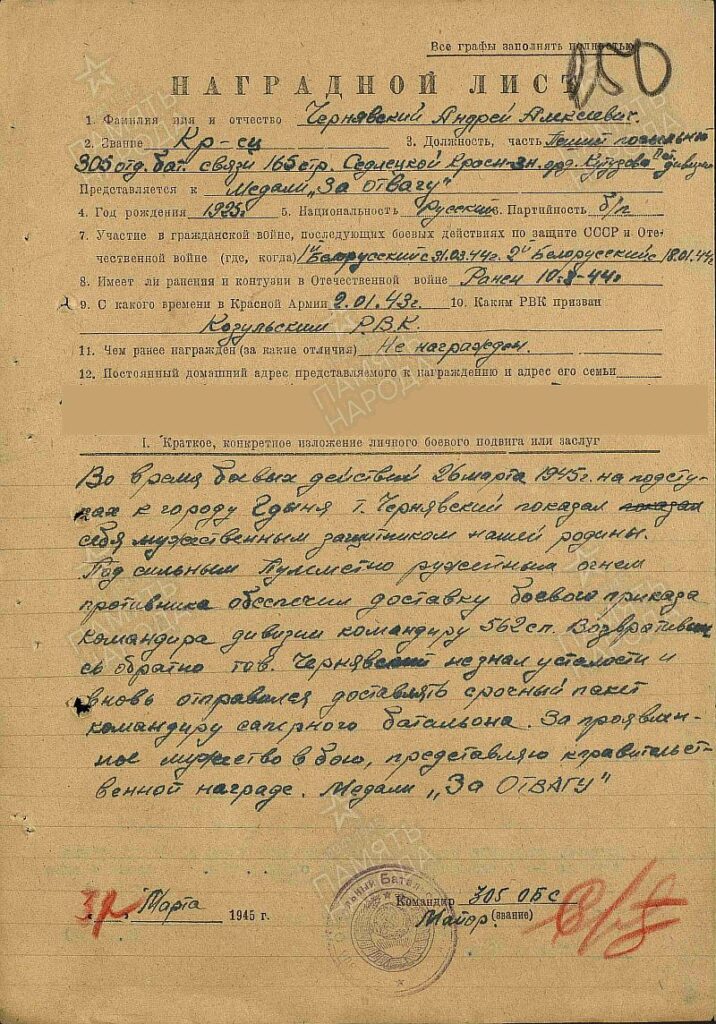 Все графы заполнять полностью
150
НАГРАДНОЙ ЛИСТ
1. Фамилия имя и отчество Чернявский Андрей Алексеевич.
2. Звание Кр-ец 3. Должность, часть Пеший посыльный
305 отд. бат. связи 165 стр. Седлецкой Красн-зн. орд. Кутузова дивизии
Представляется к Медали „За ОТВАГУ"
4. Год рождения 1925г. 5. Национальность Русский 6. Партийность б/п
7. Участие в гражданской войне, последующих боевых действиях по защите СССР и Оте-
чественной войне (где, когда) 1й Белорусский с 31.03.44г. 2й Белорусский с 18.01.44г
8. Имеет ли ранения и контузии в Отечественной войне Ранен 10.8-44г
9. С какого времени в Красной Армии 2.01.43г. 10. Каким РВК призван
Козульским Р.В.К.
11. Чем ранее награжден (за какие отличия) Не награжден.
12. Постоянный домашний адрес представляемого к награждению и адрес его семьи
I. Краткое, конкретное изложение личного боевого подвига или заслуг
Во время боевых действий 26 марта 1945г. на подсту-
пах к городу Гдыня т. Чернявский показал показал
себя мужественным защитником нашей родины.
Под сильным Пулеметно ружейным огнем
противника обеспечил доставку боевого приказа
командира дивизии командиру 562сп. Возвративши
сь обратно тов. Чернявский незнал усталости и
вновь отправился доставлять срочный пакет
командиру саперного батальона. За проявлен-
ное мужество в бою, представляю к правительст-
венной награде. Медали „За ОТВАГУ"
Марта 1945 г.
Командир 305 ОБС
Майор. (звание)
ПАМЯТЬ НАРОДА